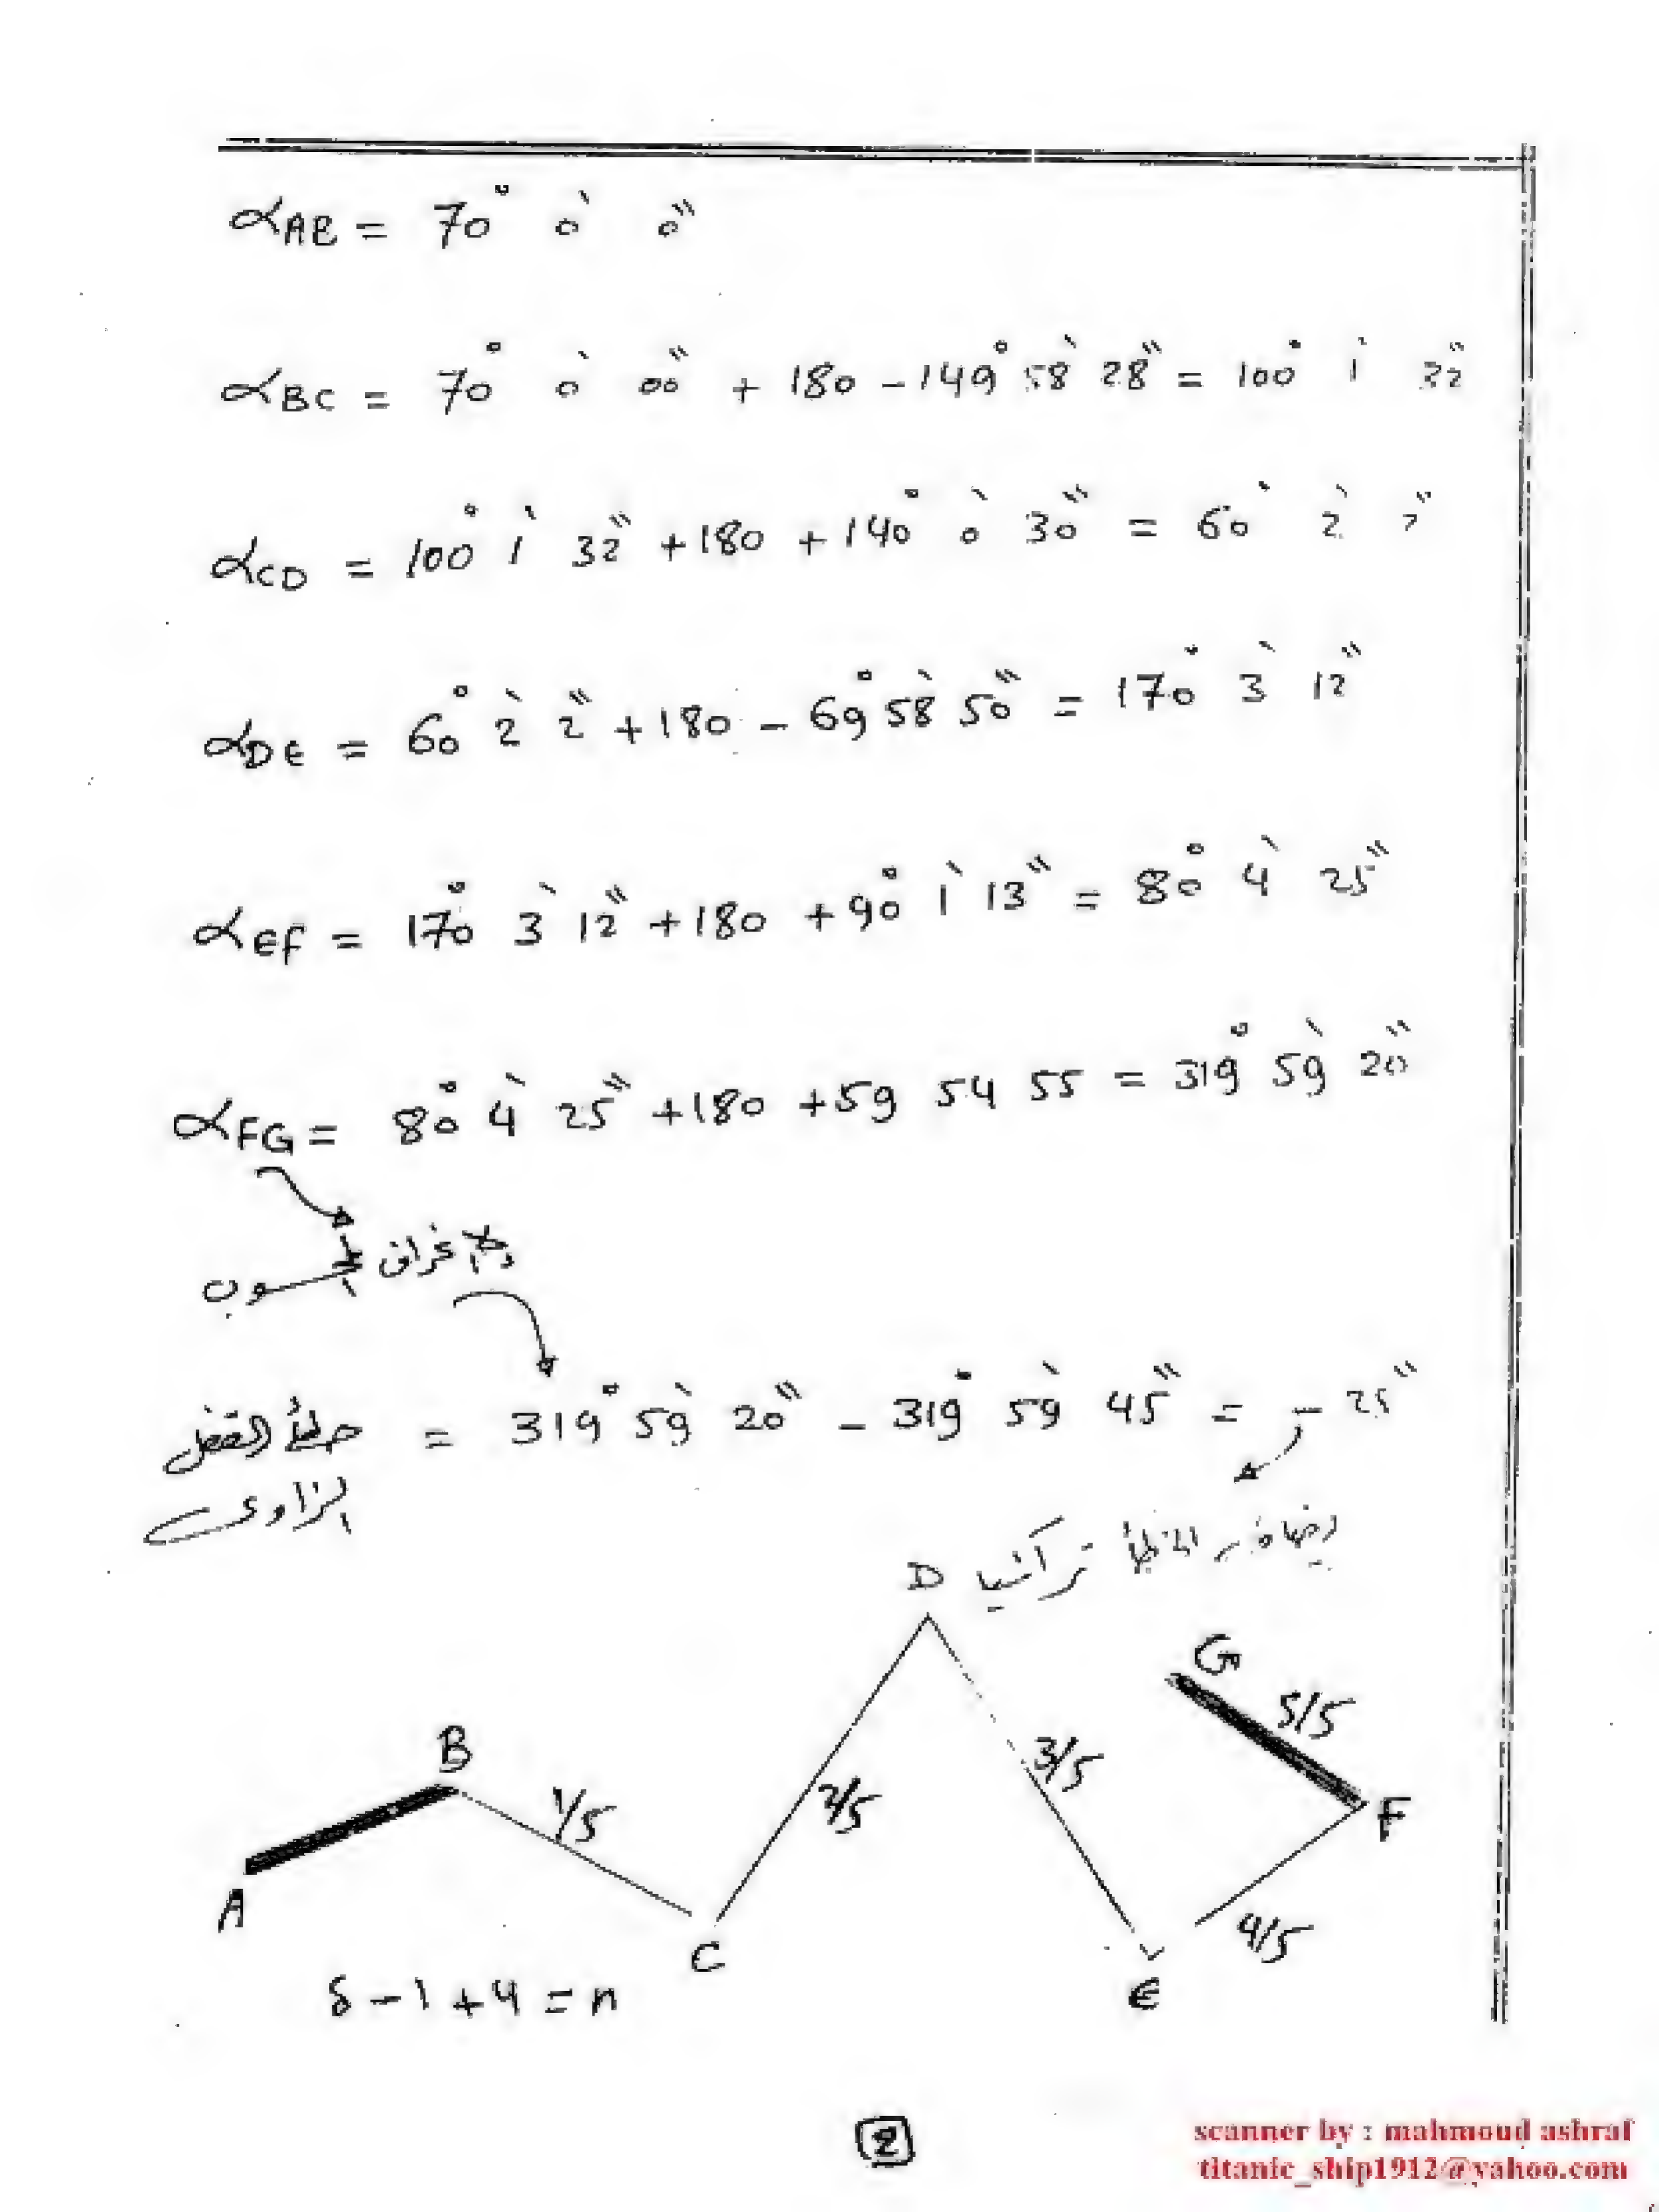 αAB = 70° 0' 0"
αBC = 70° 0' 00" + 180 - 149° 58' 28" = 100° 1' 32"
αCD = 100° 1' 32" + 180 + 140° 0' 30" = 60° 2' 2"
αDE = 60° 2' 2" + 180 - 69° 58' 50" = 170° 3' 12"
αEF = 170° 3' 12" + 180 + 90° 1' 13" = 80° 4' 25"
αFG = 80° 4' 25" + 180 + 59 54 55 = 319° 59' 20"
خطأ القفل = 319° 59' 20" - 319° 59' 45" = - 25"
الزاوى
يضاف الخطأ تراكميا
D
G
5/5
B
3/5
1/5
2/5
F
A
4/5
C
E
δ - 1 + 4 = n
2
scanner by : mahmoud ashraf
titanic_ship1912@yahoo.com